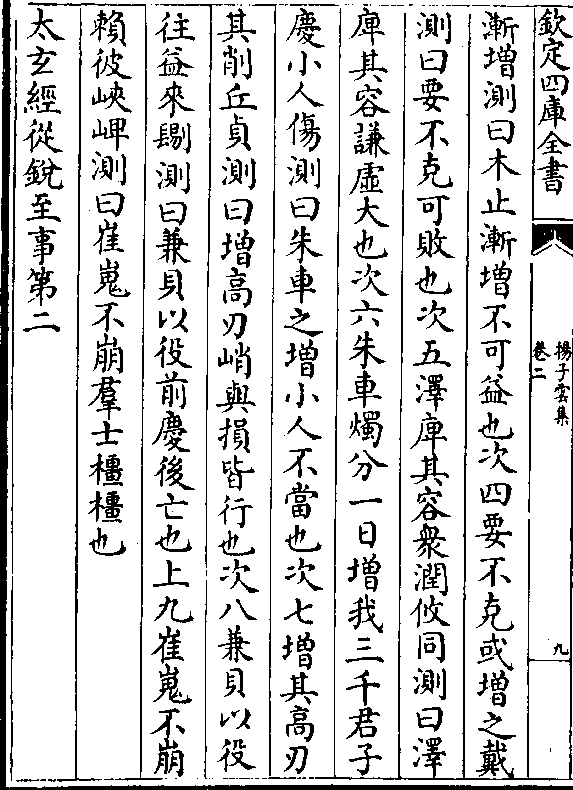 欽定四庫全書
揚子雲集
卷二
九
漸增測曰木止漸增不可益也次四要不克或增之戴
測曰要不克可敗也次五澤庳其容衆潤攸同測曰澤
庳其容謙虛大也次六朱車燭分一日增我三千君子
慶小人傷測曰朱車之增小人不當也次七增其高刃
其削丘貞測曰增高刃峭與損皆行也次八兼貝以役
往益來剔測曰兼貝以役前慶後亡也上九崔嵬不崩
賴彼峽岬測曰崔嵬不崩羣士橿橿也
太玄經從銳至事第二